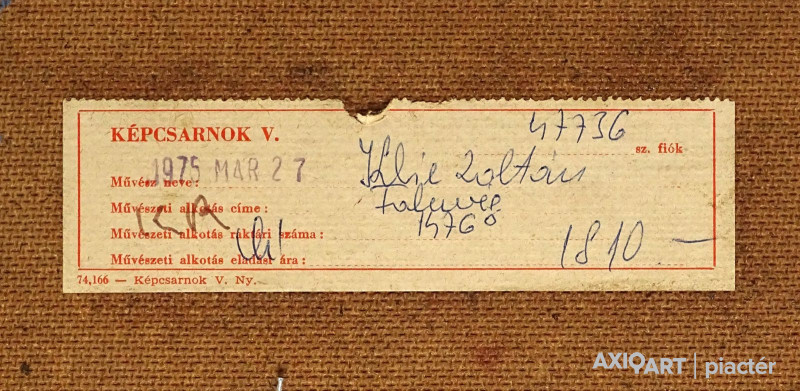 KÉPCSARNOK V.
47736
sz. fiók
1975 MAR 27
Művész neve: Klie Zoltán
Művészeti alkotás címe: Faluvég
KA
Művészeti alkotás raktári száma:
Művészeti alkotás eladási ára: 1810 —
74,166 — Képcsarnok V. Ny.
AXIOART | piactér